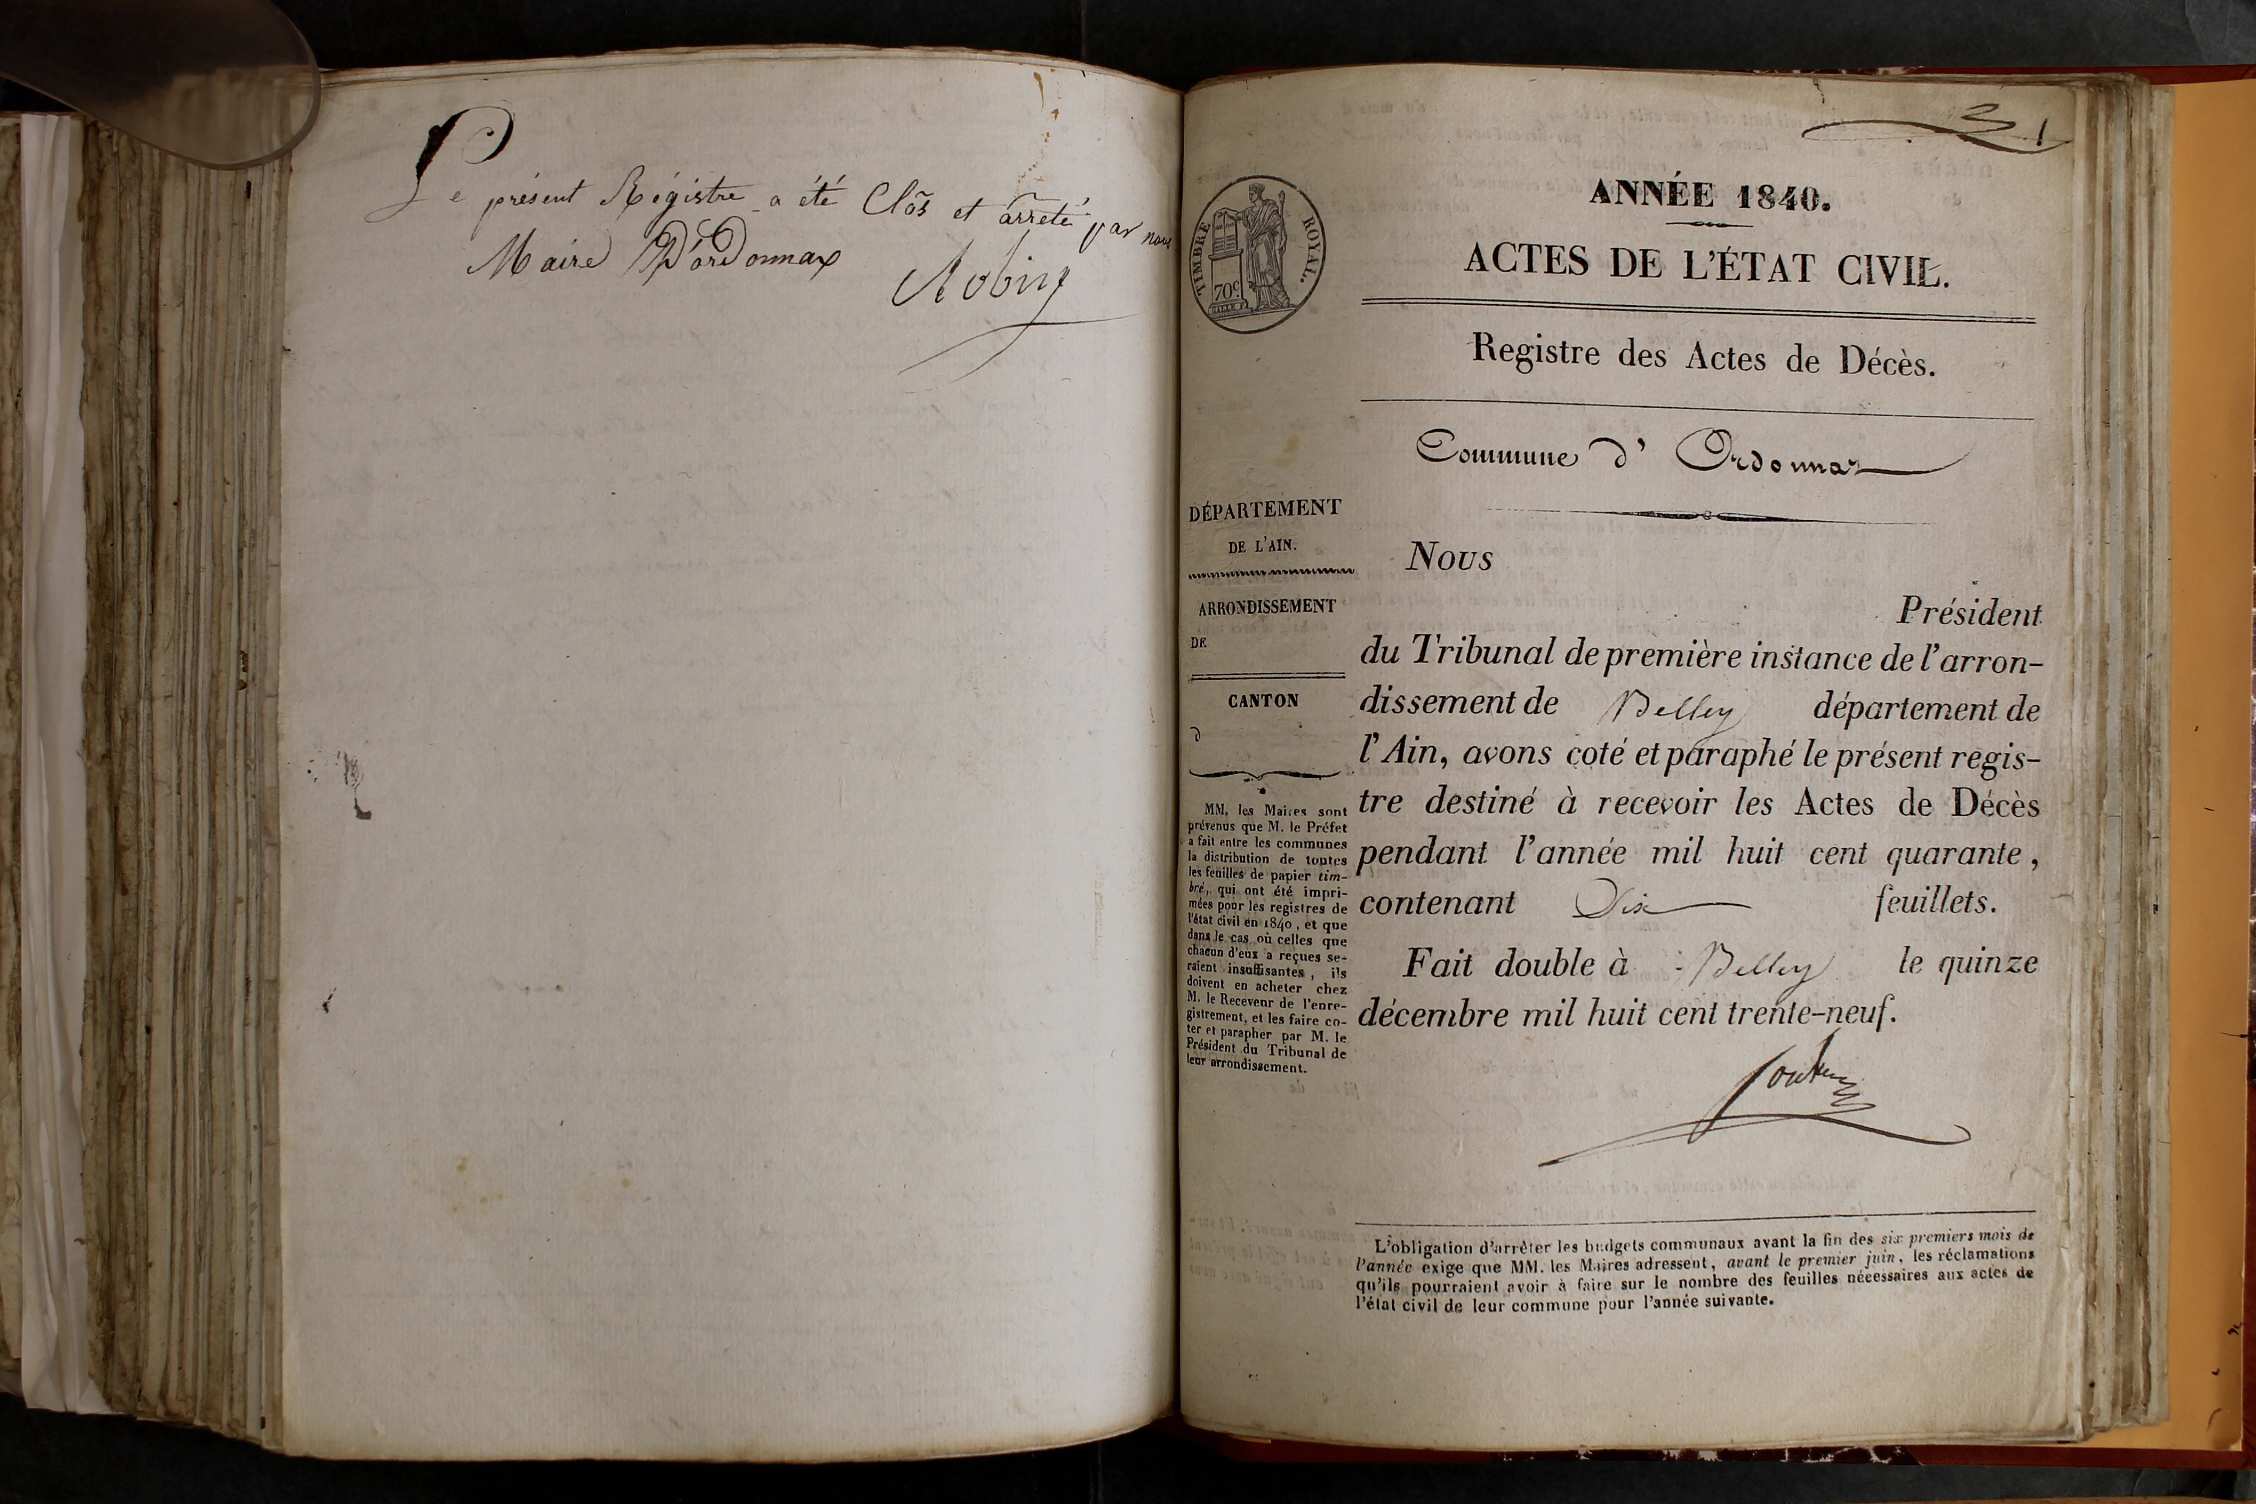 Le présent Régistre a été Clôs et arreté par nous
Maire D'ordonnax
Robin
1
TIMBRE ROYAL.
70c
ANNÉE 1840.
ACTES DE L'ÉTAT CIVIL.
Registre des Actes de Décès.
Commune d' Ordonnax
DÉPARTEMENT
DE L'AIN.
ARRONDISSEMENT
DE
CANTON
d
MM. les Maires sont
prévenus que M. le Préfet
a fait entre les communes
la distribution de toutes
les feuilles de papier tim-
bré, qui ont été impri-
mées pour les registres de
l'état civil en 1840, et que
dans le cas où celles que
chacun d'eux a reçues se-
raient insuffisantes, ils
doivent en acheter chez
M. le Receveur de l'enre-
gistrement, et les faire co-
ter et parapher par M. le
Président du Tribunal de
leur arrondissement.
Nous
Président
du Tribunal de première instance de l'arron-
dissement de Belley département de
l'Ain, avons coté et paraphé le présent regis-
tre destiné à recevoir les Actes de Décès
pendant l'année mil huit cent quarante,
contenant feuillets.
Fait double à Belley le quinze
décembre mil huit cent trente-neuf.
L'obligation d'arrêter les budgets communaux avant la fin des six premiers mois de
l'année exige que MM. les Maires adressent, avant le premier juin, les réclamations
qu'ils pourraient avoir à faire sur le nombre des feuilles nécessaires aux actes de
l'état civil de leur commune pour l'année suivante.